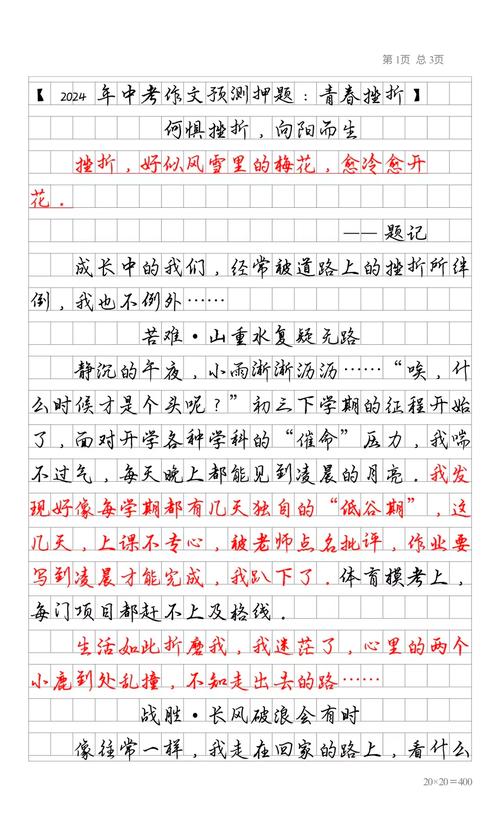 第1页 总3页
【2024年中考作文预测押题：青春挫折】
何惧挫折，向阳而生
挫折，好似风雪里的梅花，愈冷愈开
花．
——题记
成长中的我们，经常被道路上的挫折所绊
倒，我也不例外……
苦难·山重水复疑无路
静沉的午夜，小雨淅淅沥沥……“唉，什
么时候才是个头呢？”初三下学期的征程开始
了，面对开学各种学科的“催命”压力，我喘
不过气，每天晚上都能见到凌晨的月亮．我发
现好像每学期都有几天独自的“低谷期”，这
几天，上课不专心，被老师点名批评，作业要
写到凌晨才能完成，我趴下了．体育摸考上，
每门项目都赶不上及格线．
生活如此折磨我，我迷茫了，心里的两个
小鹿到处乱撞，不知走出去的路……
战胜·长风破浪会有时
像往常一样，我走在回家的路上，看什么
20×20=400